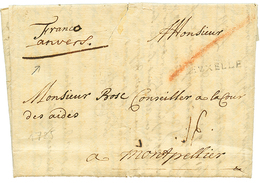 Franco
anvers.
A Monsieur
Monsieur Bosc Conseiller a la Cour
des aides
a montpellier